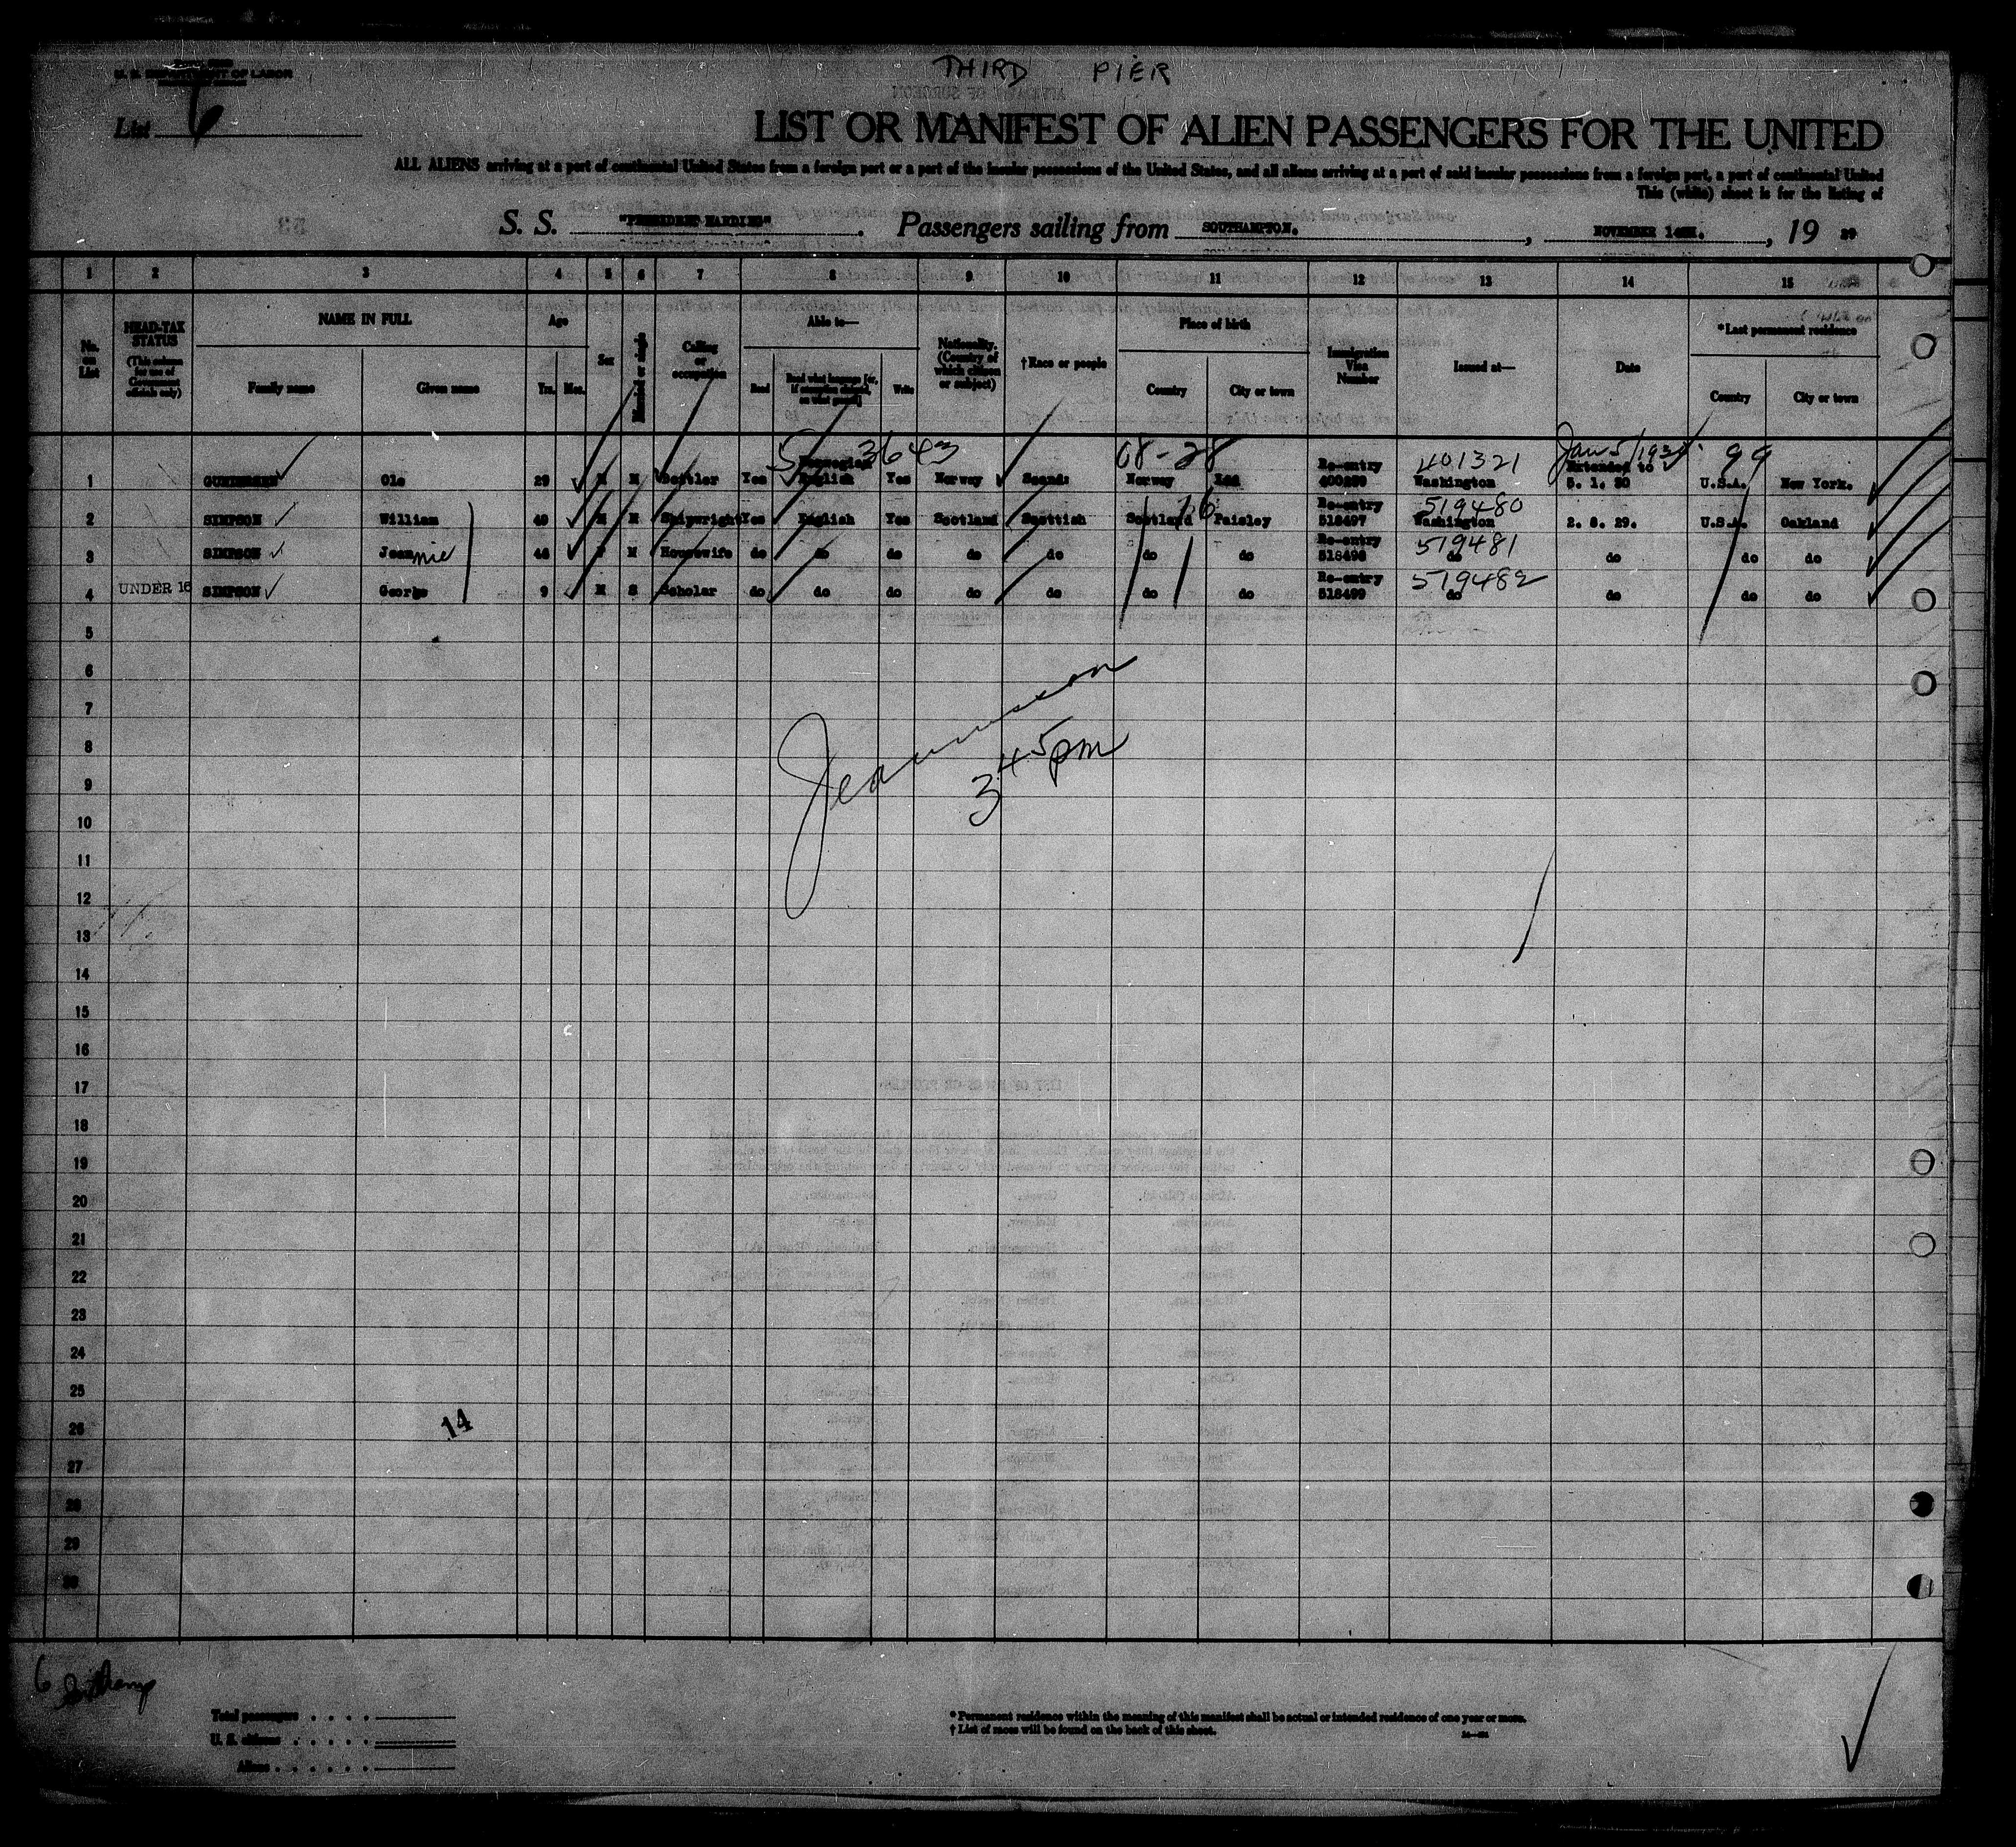 THIRD PIER
U. S. DEPARTMENT OF LABOR
List 6
LIST OR MANIFEST OF ALIEN PASSENGERS FOR THE UNITED
ALL ALIENS arriving at a port of continental United States from a foreign port or a port of the insular possessions of the United States, and all aliens arriving at a port of said insular possessions from a foreign port, a port of continental United
This (white) sheet is for the listing of
S. S. "PRESIDENT HARDING" . Passengers sailing from SOUTHAMPTON. , NOVEMBER 14TH. , 19 29
1 2 3 4 5 6 7 8 9 10 11 12 13 14 15
No. on List
HEAD-TAX STATUS (This column for use of Government officials only)
NAME IN FULL Family name Given name
Age Yrs. Mos.
Sex
Married or single
Calling or occupation
Able to— Read Read what language [or, if exemption claimed, on what ground] Write
Nationality. (Country of which citizen or subject)
†Race or people
Place of birth Country City or town
Immigration Visa Number
Issued at—
Date
*Last permanent residence Country City or town
53643 08-28 401321 Jan 5/193 99
1 GUNDERSEN Ole 29 M M Yes Norwegian English Yes Norway Scand: Norway Re-entry 400259 Washington Extended to 5. 1. 30 U.S.A. New York.
16 519480
2 SIMPSON William 49 M M Shipwright Yes English Yes Scotland Scottish Scotland Paisley Re-entry 518497 Washington 2. 8. 29. U.S.A. Oakland
519481
3 SIMPSON Jeannie 46 F M Housewife do do do do do do do Re-entry 518498 do do do do
519482
4 UNDER 16 SIMPSON George 9 M S Scholar do do do do do do do Re-entry 518499 do do do do
5
6
7
8
9
10
11
12
13
14
15
16
17
18
19
20
21
22
23
24
25
26
27
28
29
30
3 45 pm
14
6
Total passengers . . . .
U. S. citizens . . . . .
Aliens . . . . . .
* Permanent residence within the meaning of this manifest shall be actual or intended residence of one year or more.
† List of races will be found on the back of this sheet.